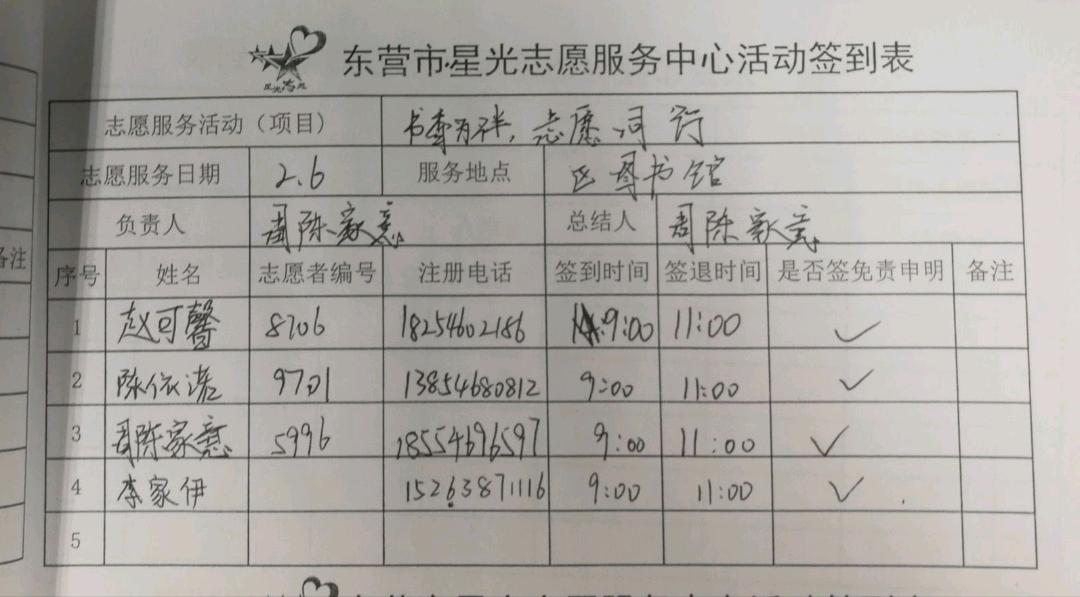 东营市星光志愿服务中心活动签到表
志愿服务活动（项目） 书香为伴，志愿同行
志愿服务日期 2.6 服务地点 区图书馆
负责人 周陈家意 总结人 周陈家意
备注
序号 姓名 志愿者编号 注册电话 签到时间 签退时间 是否签免责申明 备注
1 赵可馨 8706 18254602186 9:00 11:00 ✓
2 陈依诺 9701 13854680812 9:00 11:00 ✓
3 周陈家意 5996 18554696597 9:00 11:00 ✓
4 李家伊 15263871116 9:00 11:00 ✓
5